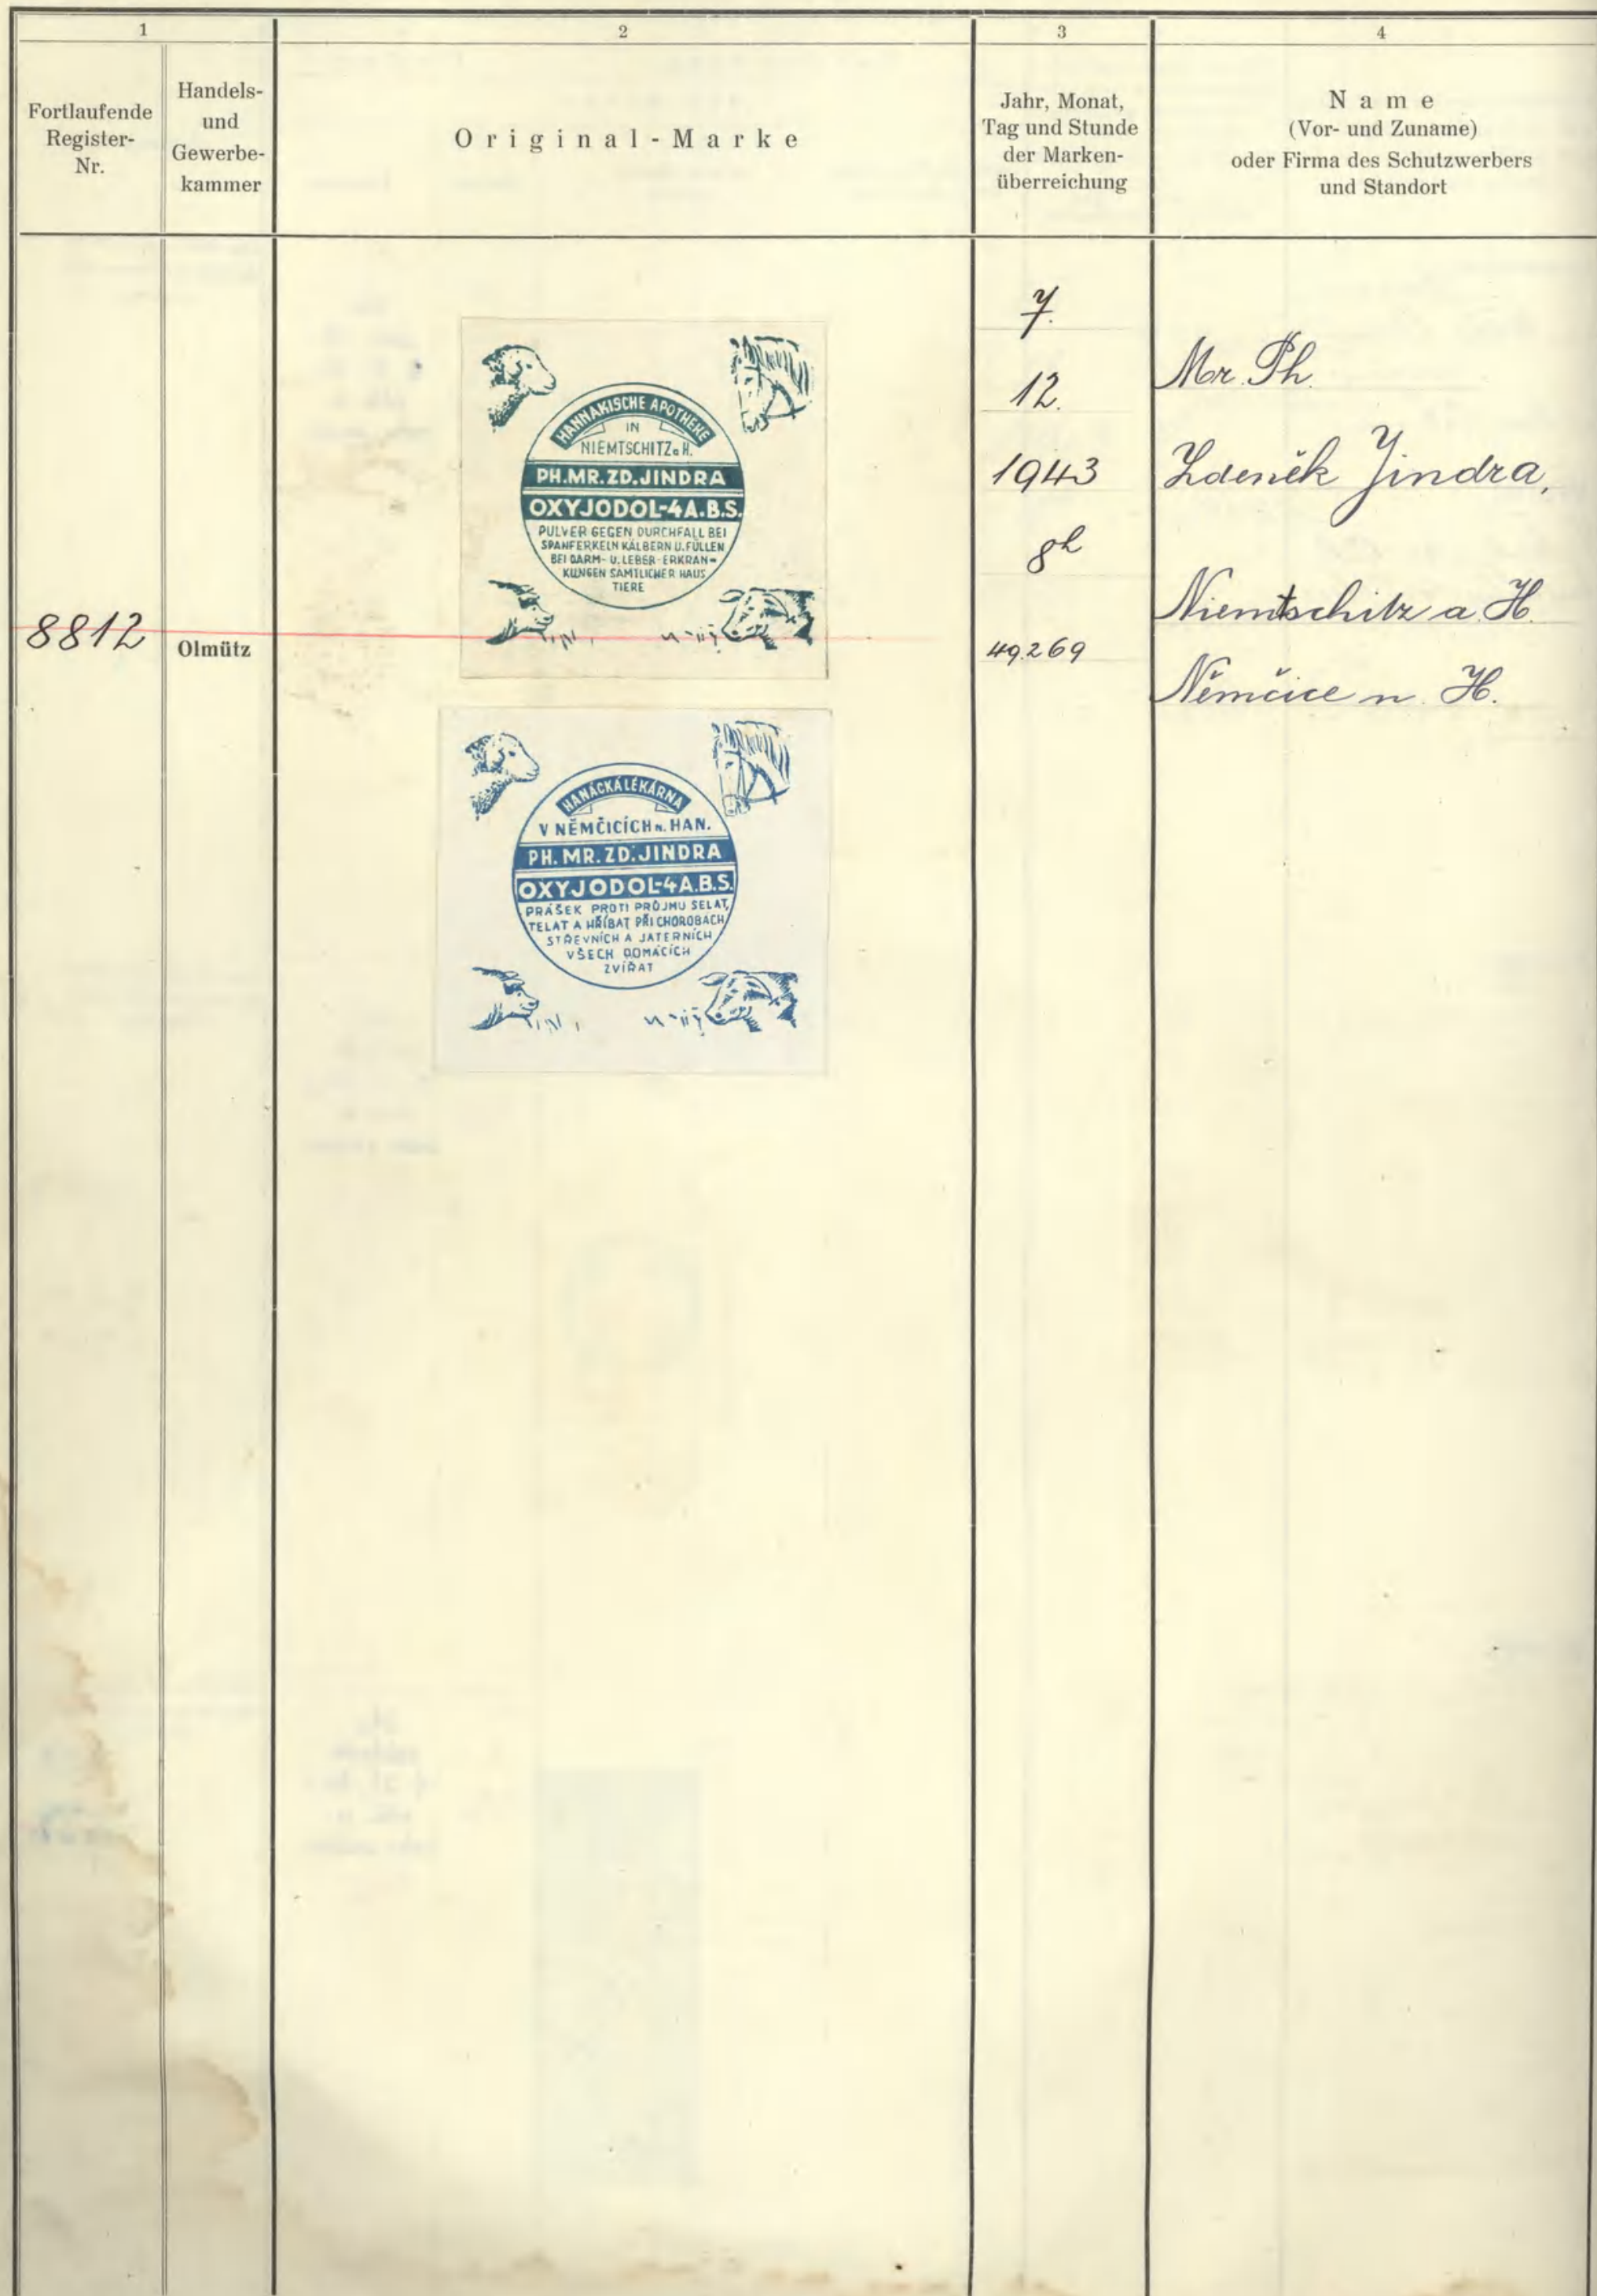 1
2
3
4
Fortlaufende
Register-
Nr.
Handels-
und
Gewerbe-
kammer
Original-Marke
Jahr, Monat,
Tag und Stunde
der Marken-
überreichung
Name
(Vor- und Zuname)
oder Firma des Schutzwerbers
und Standort
8812
Olmütz
HANNAKISCHE APOTHEKE
IN
NIEMTSCHITZ a. H.
PH. MR. ZD. JINDRA
OXYJODOL-4 A.B.S.
PULVER GEGEN DURCHFALL BEI
SPANFERKELN KÄLBERN U. FÜLLEN
BEI DARM- U. LEBER-ERKRAN-
KUNGEN SÄMTLICHER HAUS
TIERE
HANÁCKÁ LÉKÁRNA
V NĚMČICÍCH n. HAN.
PH. MR. ZD. JINDRA
OXYJODOL-4 A.B.S.
PRÁŠEK PROTI PRŮJMU SELAT,
TELAT A HŘÍBAT PŘI CHOROBÁCH
STŘEVNÍCH A JATERNÍCH
VŠECH DOMÁCÍCH
ZVÍŘAT
7.
12.
1943
8h
49.269
Mr. Ph.
Zdeněk Jindra,
Niemtschitz a. H.
Němčice n. H.